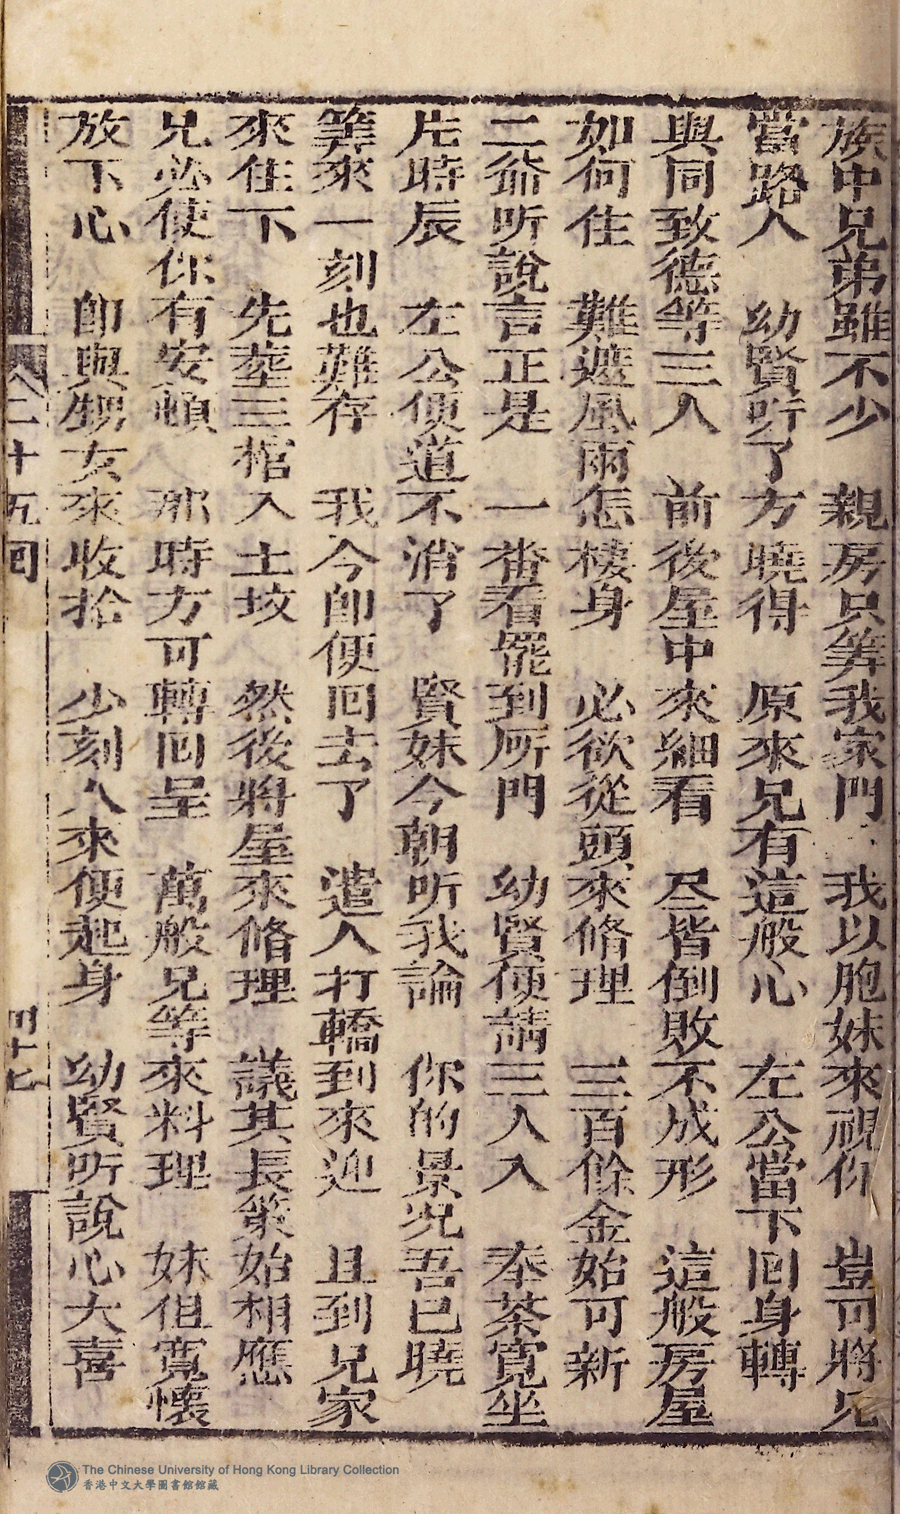 族中兄弟雖不少 親房只筭我家門 我以胞妹來視你 豈可將兄
當路人 幼賢听了方曉得 原來兄有這般心 左公當下回身轉
與同致德等三人 前後屋中來細看 尽皆倒敗不成形 這般房屋
如何住 難遮風雨怎棲身 必欲從頭來脩理 三百餘金始可新
二爺听說言正是 一番看罷到所門 幼賢便請三人入 奉茶寬坐
片時辰 左公便道不消了 賢妹今朝听我論 你的景况吾已曉
筭來一刻也難存 我今即便回去了 遣人打轎到來迎 且到兄家
來住下 先塟三棺入土坟 然後將屋來脩理 議其長策始相應
兄必使你有安頓 那時方可轉回呈 萬般兄等來料理 妹但寬懷
放下心 即與甥女來收拾 少刻人來便起身 幼賢听說心大喜
二十五回
四十七
The Chinese University of Hong Kong Library Collection
香港中文大學圖書館館藏